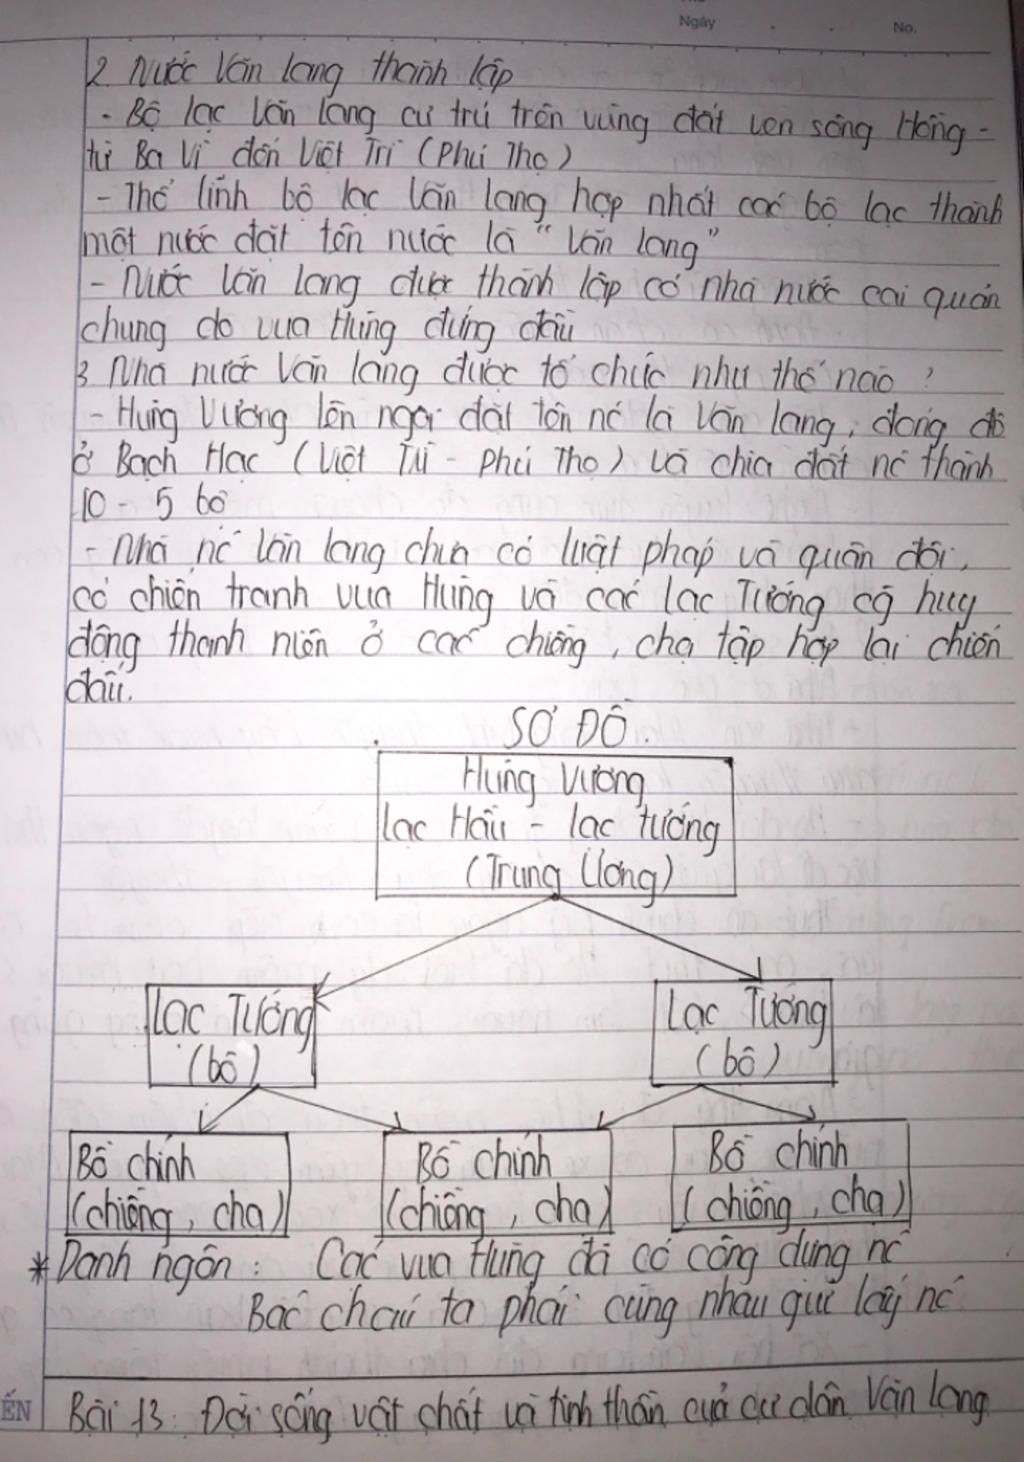 Ngày No.
2 Nước Văn Lang thành lập
- Bộ lạc Văn Lang cư trú trên vùng đất ven sông Hồng -
từ Ba Vì đến Việt Trì (Phú Thọ)
- Thủ lĩnh bộ lạc Văn Lang hợp nhất các bộ lạc thành
một nước đặt tên nước là "Văn Lang"
- Nước Văn Lang được thành lập có nhà nước cai quản
chung do vua Hùng đứng đầu
3 Nhà nước Văn Lang được tổ chức như thế nào ?
- Hùng Vương lên ngôi đặt tên nc là Văn Lang, đóng đô
ở Bạch Hạc (Việt Trì - Phú Thọ) và chia đất nc thành
10 - 5 bộ
- Nhà nc Văn Lang chưa có luật pháp và quân đội,
có chiến tranh vua Hùng và các Lạc Tướng cg huy
động thanh niên ở các chiềng, chạ tập hợp lại chiến
đấu.
SƠ ĐỒ.
Hùng Vương
Lạc Hầu - Lạc tướng
(Trung Ương)
Lạc Tướng
(bộ)
Lạc Tướng
(bộ)
Bồ chính
(chiềng, chạ)
Bồ chính
(chiềng, chạ)
Bồ chính
(chiềng, chạ)
* Danh ngôn: Các vua Hùng đã có công dựng nc
Bác cháu ta phải cùng nhau giữ lấy nc
ẾN Bài 13: Đời sống vật chất và tinh thần của cư dân Văn Lang